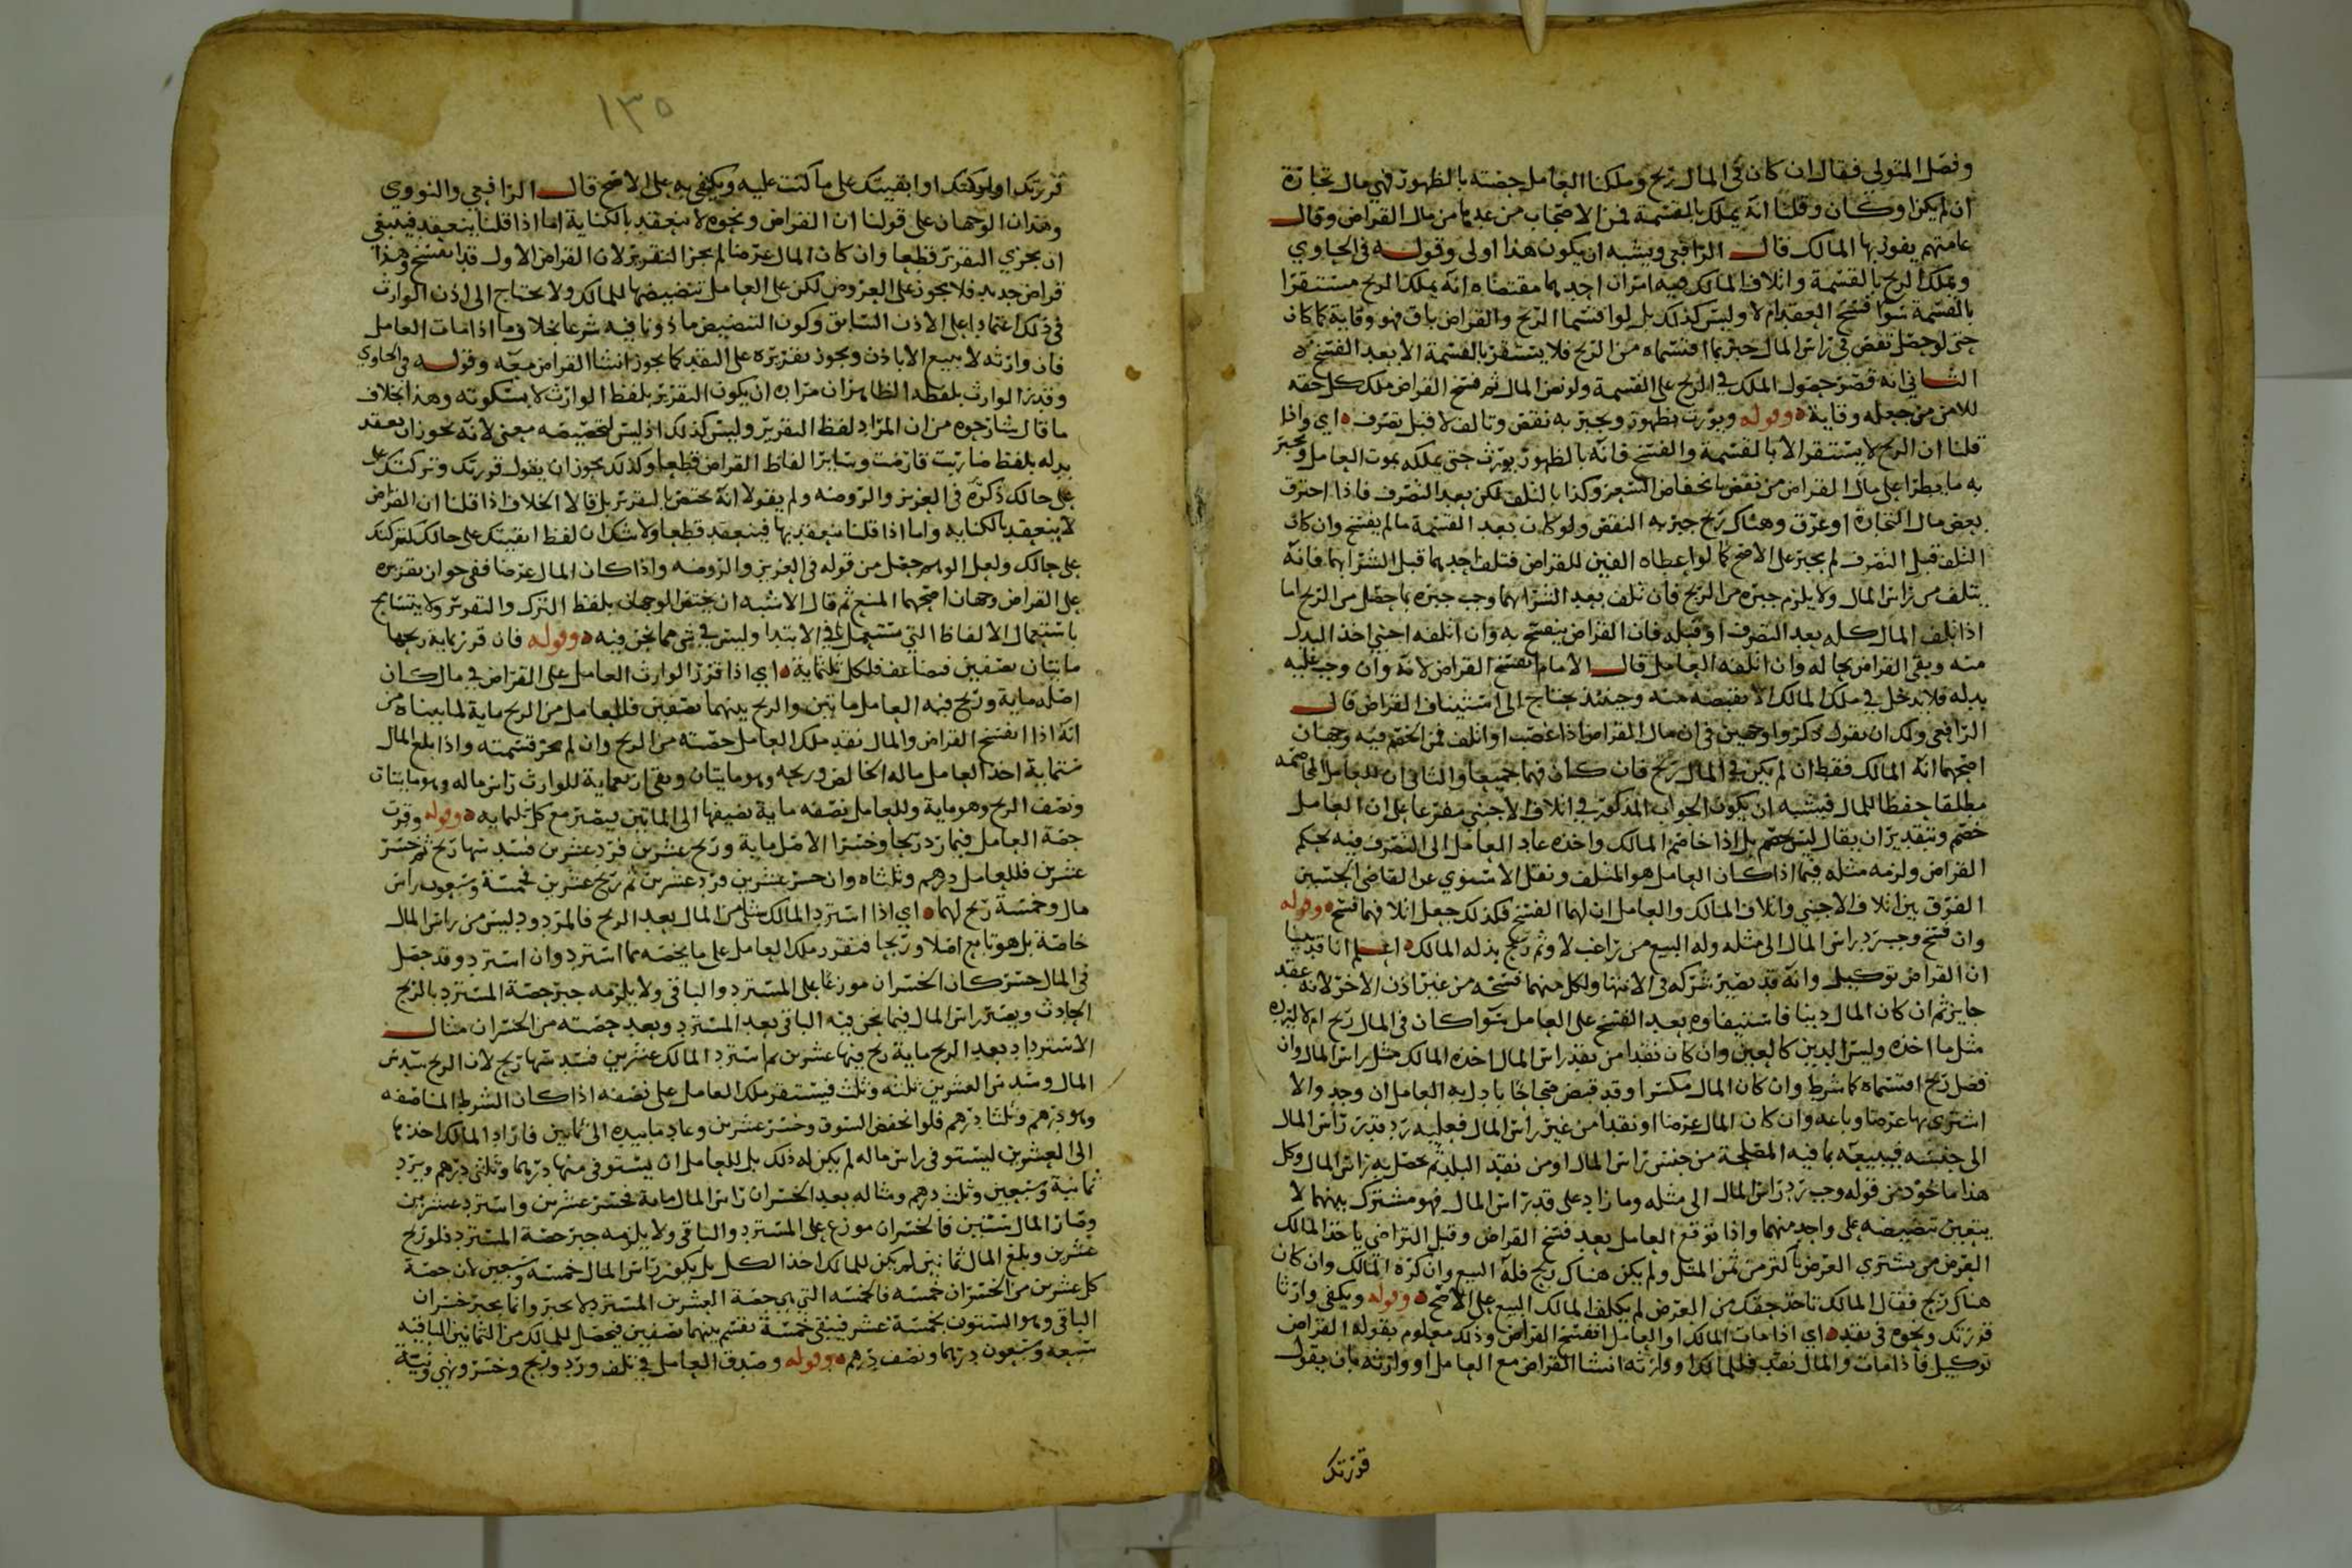 وفصل المتولي فقال ان كان في المال ربح وملكنا العامل حصته بالظهور فهي مال تجارة
ان لم يكن او كان وقلنا انه يملك بالقسمة فمن الاصحاب من عدها من مال القراض وقال
عامتهم يفوز بها المالك قال الرافعي ويشبه ان يكون هذا اولى وقوله في الحاوي
وملك الربح بالقسمة واتلاف المالك فيه امران احدهما مقتضاه انه يملك الربح مستقرا
بالقسمة سوا فسخ العقد ام لا وليس كذلك بل لو اقتسما الربح والقراض باق فهو وقاية كما كان
حتى لو حصل نقص في راس المال جبر بما اقتسماه من الربح فلا يستقر بالقسمة الا بعد الفسخ
الثاني انه قصر حصول الملك في الربح على القسمة ولو نض المال ثم فسخ القراض ملك كل حقه
للامن من جعله وقاية وقوله ويورث بظهور ويجبر به نقص وتالف لا قبل تصرف اي واذا
قلنا ان الربح لا يستقر الا بالقسمة والفسخ فانه بالظهور يورث حتى يملكه بموت العامل ويجبر
به ما يطرا على مال القراض من نقص بانخفاض السعر وكذا بالتلف لكن بعد التصرف فاذا احترق
بعض مال التجارة او غرق وهناك ربح جبر به النقص ولو كان بعد القسمة ما لم يفسخ وان كان
التلف قبل التصرف لم يجبر على الاصح كما لو اعطاه الفين للقراض فتلف احدهما قبل الشرا بهما فانه
يتلف من راس المال ولا يلزم جبره من الربح فان تلف بعد الشرا بهما وجب جبره بما حصل من الربح اما
اذا تلف المال كله بعد التصرف او قبله فان القراض ينفسخ به وان اتلفه اجنبي اخذ البدل
منه وبقي القراض بحاله وان اتلفه العامل قال الامام انفسخ القراض لانه وان وجب عليه
بدله فلا يدخل في ملك المالك الا بقبضه منه وحينئذ يحتاج الى استيناف القراض قال
الرافعي ولك ان تقول ذكروا وجهين في ان مال القراض اذا غصب او اتلف فمن الخصم فيه وجهان
اصحهما انه المالك فقط ان لم يكن في المال ربح فان كان فهما جميعا والثاني ان للعامل المخاصمه
مطلقا حفظا للمال فيشبه ان يكون الجواب المذكور في اتلاف الاجنبي مفرعا على ان العامل
خصم وبتقدير ان يقال ليس بخصم بل اذا خاصم المالك واخذه عاد العامل الى التصرف فيه بحكم
القراض ولزمه مثله فيما اذا كان العامل هو المتلف ونقل الاسنوي عن القاضي الحسين
الفرق بين اتلاف الاجنبي واتلاف المالك والعامل ان لهما الفسخ فكذلك جعل اتلافهما فسخ وقوله
وان فسخ وجب رد راس المال الى مثله وله البيع من راغب لا وثم ربح بذله المالك اعلم انا قد بينا
ان القراض توكيل وانه قد يصير شركه في الانتها ولكل منهما فسخه من غير اذن الاخر لانه عقد
جايز ثم ان كان المال دينا فاستيفاوه بعد الفسخ على العامل سوا كان في المال ربح ام لا ليرده
مثل ما اخذه وليس الدين كالعين وان كان نقدا من نقد راس المال اخذه المالك مثل راس المال وان
فضل ربح اقتسماه كما شرط وان كان المال مكسرا وقد قبض صحاحا بادل به العامل ان وجد والا
اشترى بها عرضا وباعه وان كان المال عرضا او نقدا من غير راس المال فعليه رد قدر راس المال
الى جنسه فيبيعه بما فيه المصلحة من جنس راس المال او من نقد البلد ثم يحصل به راس المال وكل
هذا ماخوذ من قوله وجب رد راس المال الى مثله وما زاد على قدر راس المال فهو مشترك بينهما لا
يتعين تنضيضه على واحد منهما واذا توقع العامل بعد فسخ القراض وقبل التراضي ياخذ المالك
العرض من يشتري العرض باكثر من ثمن المثل ولم يكن هناك ربح فله البيع وان كره المالك وان كان
هناك ربح فقال المالك تاخذ حقك من العرض لم يكلف المالك البيع على الاصح وقوله ويكفي وارثا
قررتك ونحوه في نقد اي اذا مات المالك او العامل انفسخ القراض وذلك معلوم بقوله القراض
توكيل فاذا مات والمال نقد فللمالك او وارثه انشا القراض مع العامل او وارثه بان يقول
قررتك
١٣٥
قررتك او تركتك او ابقيتك على ما كنت عليه ويكتفى به على الاصح قال الرافعي والنووي
وهذان الوجهان على قولنا ان القراض ونحوه لا ينعقد بالكناية اما اذا قلنا ينعقد فينبغي
ان يجزي التقرير قطعا وان كان المال عرضا لم يجز التقرير لان القراض الاول قد انفسخ وهذا
قراض جديد فلا يجوز على العروض لكن على العامل تنضيضها للمالك ولا يحتاج الى اذن الوارث
في ذلك اعتمادا على الاذن السابق وكون التنضيض ماذونا فيه شرعا بخلاف ما اذا مات العامل
فان وارثه لا يبيع الا باذن ويجوز تقريره على النقد كما يجوز انشا القراض معه وقوله في الحاوي
وقدر الوارث بلفظه الظاهر ان مراده ان يكون التقرير بلفظ الوارث لا بسكوته وهذا بخلاف
ما قال شارحوه من ان المراد لفظ التقرير وليس كذلك اذ ليس لتخصيصه معنى لانه يجوز ان يعقد
بدله بلفظ ضاربت قارضت وسايرا لفاظ القراض قطعا وكذلك يجوز ان يقول قررتك وتركتك على
على حالك ذكره في العزيز والروضه ولم يقولا انه يختص بالتقرير بل قالا الخلاف اذا قلنا ان القراض
لا ينعقد بالكنايه واما اذا قلنا ينعقد بها فينعقد قطعا ولا شك ان لفظ ابقيتك على حالك كتركتك
على حالك ولعل الوهم حصل من قوله في العزيز والروضه واذا كان المال عرضا ففي جوان تقريره
على القراض وجهان اصحهما المنع ثم قال الاشبه ان يختص الوجهان بلفظ الترك والتقرير ولا يتسامح
باستعمال الالفاظ التي تستعمل في الابتدا وليس في شي مما نحن فيه وقوله فان قرر بماية ربحها
مايتان نصفين فضاعف فلكل ثلثماية اي اذا قرر الوارث العامل على القراض في مال كان
اصله ماية وربح فيه العامل مايتين والربح بينهما نصفين فللعامل من الربح ماية لما بيناه من
انه اذا انفسخ القراض والمال نقد ملك العامل حصته من الربح وان لم تجز قسمته واذا بلغ المال
ستماية اخذ العامل ماله الخالص وربحه وهو مايتان وبقي اربعماية للوارث راس ماله وهو مايتان
ونصف الربح وهو ماية وللعامل نصفه ماية نضيفها الى المايتين يصير مع كل ثلثمايه وقوله وقرت
حصة العامل فيما رد ربحا وخسرا الاصل ماية وربح عشرين فرد عشرين فسدسها ربح ثم خسر
عشرين فللعامل درهم وثلثاه وان خسر عشرين ورد عشرين ثم ربح عشرين فخمسة وسبعون راس
مال وخمسة ربح لهما اي اذا استرد المالك شيا من المال بعد الربح فالمردود ليس من راس المال
خاصة بل هو تابع اصلا وربحا فتقرر ملك العامل على ما يخصه مما استرد وان استرد وقد حصل
في المال خسر كان الخسران موزعا على المسترد والباقي ولا يلزمه جبر حصة المسترد بالربح
الحادث ويصير راس المال فيما نحن فيه الباقي بعد المسترد وبعد حصته من الخسران مثال
الاسترداد بعد الربح ماية ربح فيها عشرين ثم استرد المالك عشرين فسدسها ربح لان الربح سدس
المال وسدس العشرين ثلثه وثلث فيستقر ملك العامل على نصفه اذا كان الشرط المناصفه
وهو درهم وثلثا درهم فلو انخفض السوق وخسر عشرين وعاد ما بيده الى ثمانين فاراد المالك اخذها
الى العشرين ليستوفي راس ماله لم يكن له ذلك بل للعامل ان يستوفي منها درهما وثلثي درهم ويرد
ثمانية وسبعين وثلث درهم ومثاله بعد الخسران راس المال ماية فخسر عشرين واسترد عشرين
وصار المال ستين فالخسران موزع على المسترد والباقي ولا يلزمه جبر حصة المسترد فلو ربح
عشرين وبلغ المال ثمانين لم يكن للمالك اخذ الكل بل يكون راس المال خمسه وسبعين لان حصة
كل عشرين من الخسران خمسه فالخمسه التي هي حصة العشرين المستردة لا تجبر وانما يجبر خسران
الباقي وهو الستون بخمسة عشر فيبقى خمسة تقسم بينهما نصفين فيحصل للمالك من الثمانين الباقيه
سبعه وسبعون درهما ونصف درهم وقوله وصدق العامل في تلف ورد وربح وخسر ونهي ونية